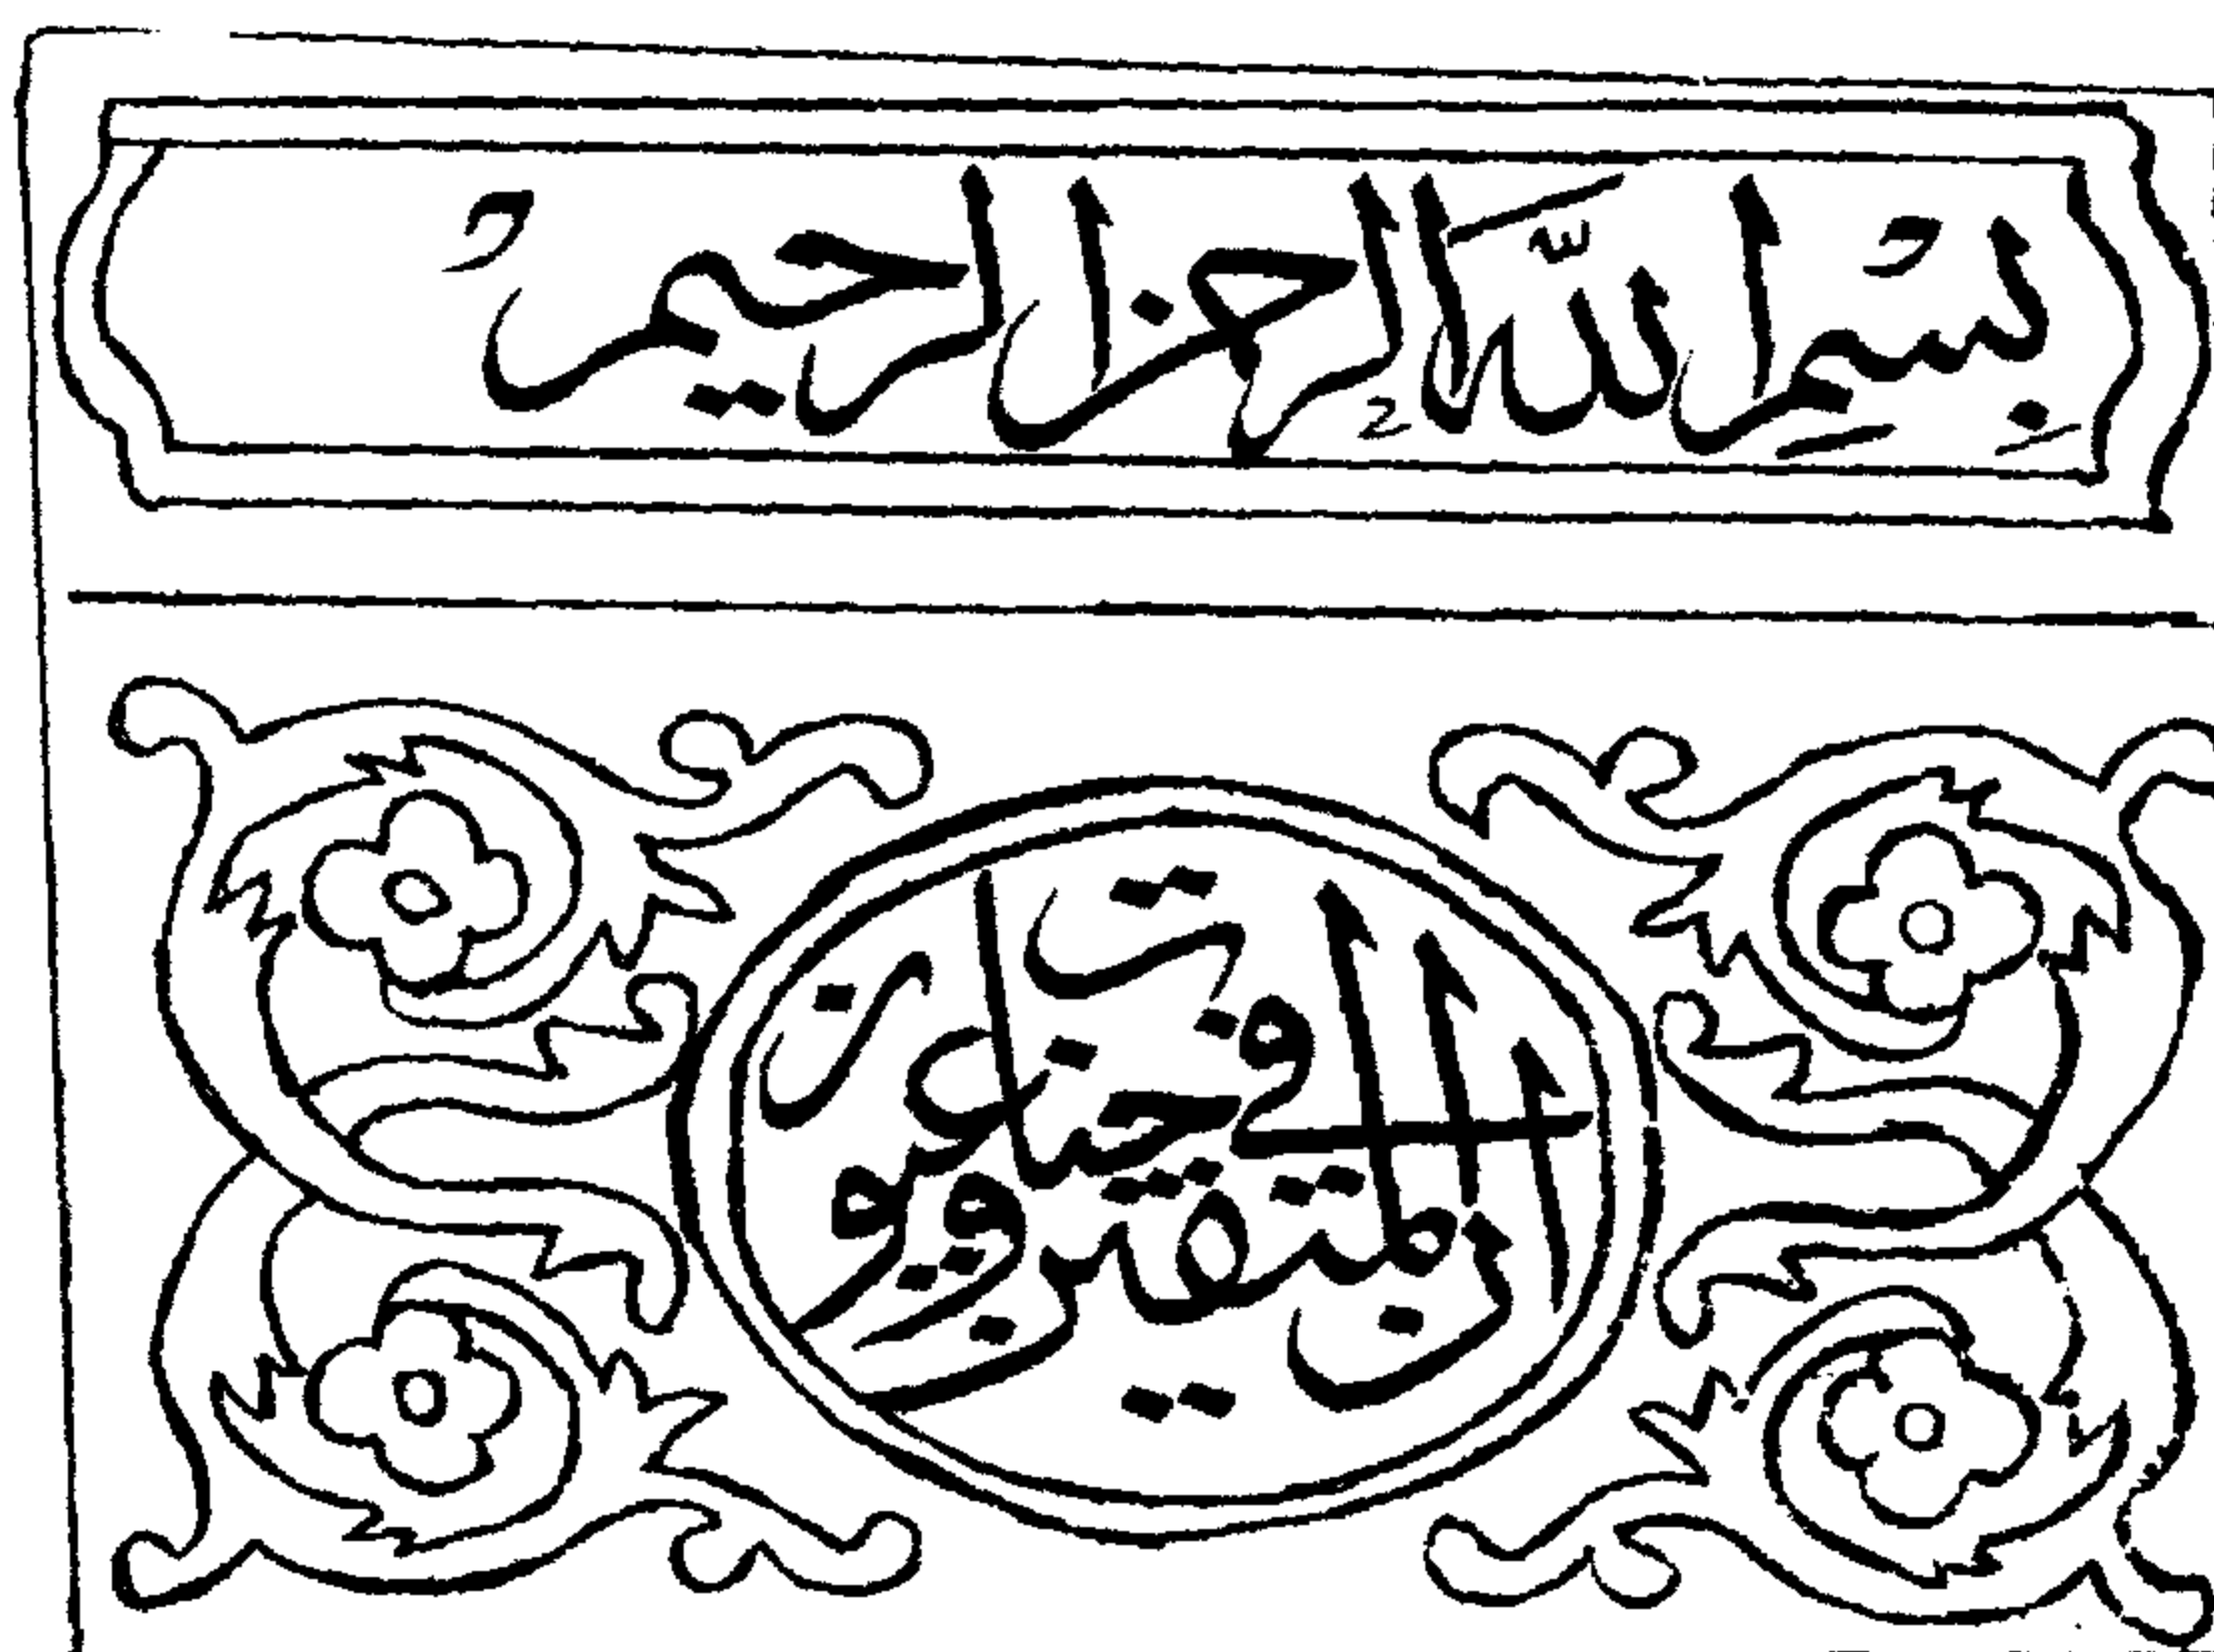 بسم الله الرحمن الرحيم
ان المتقين في جنات وعيون